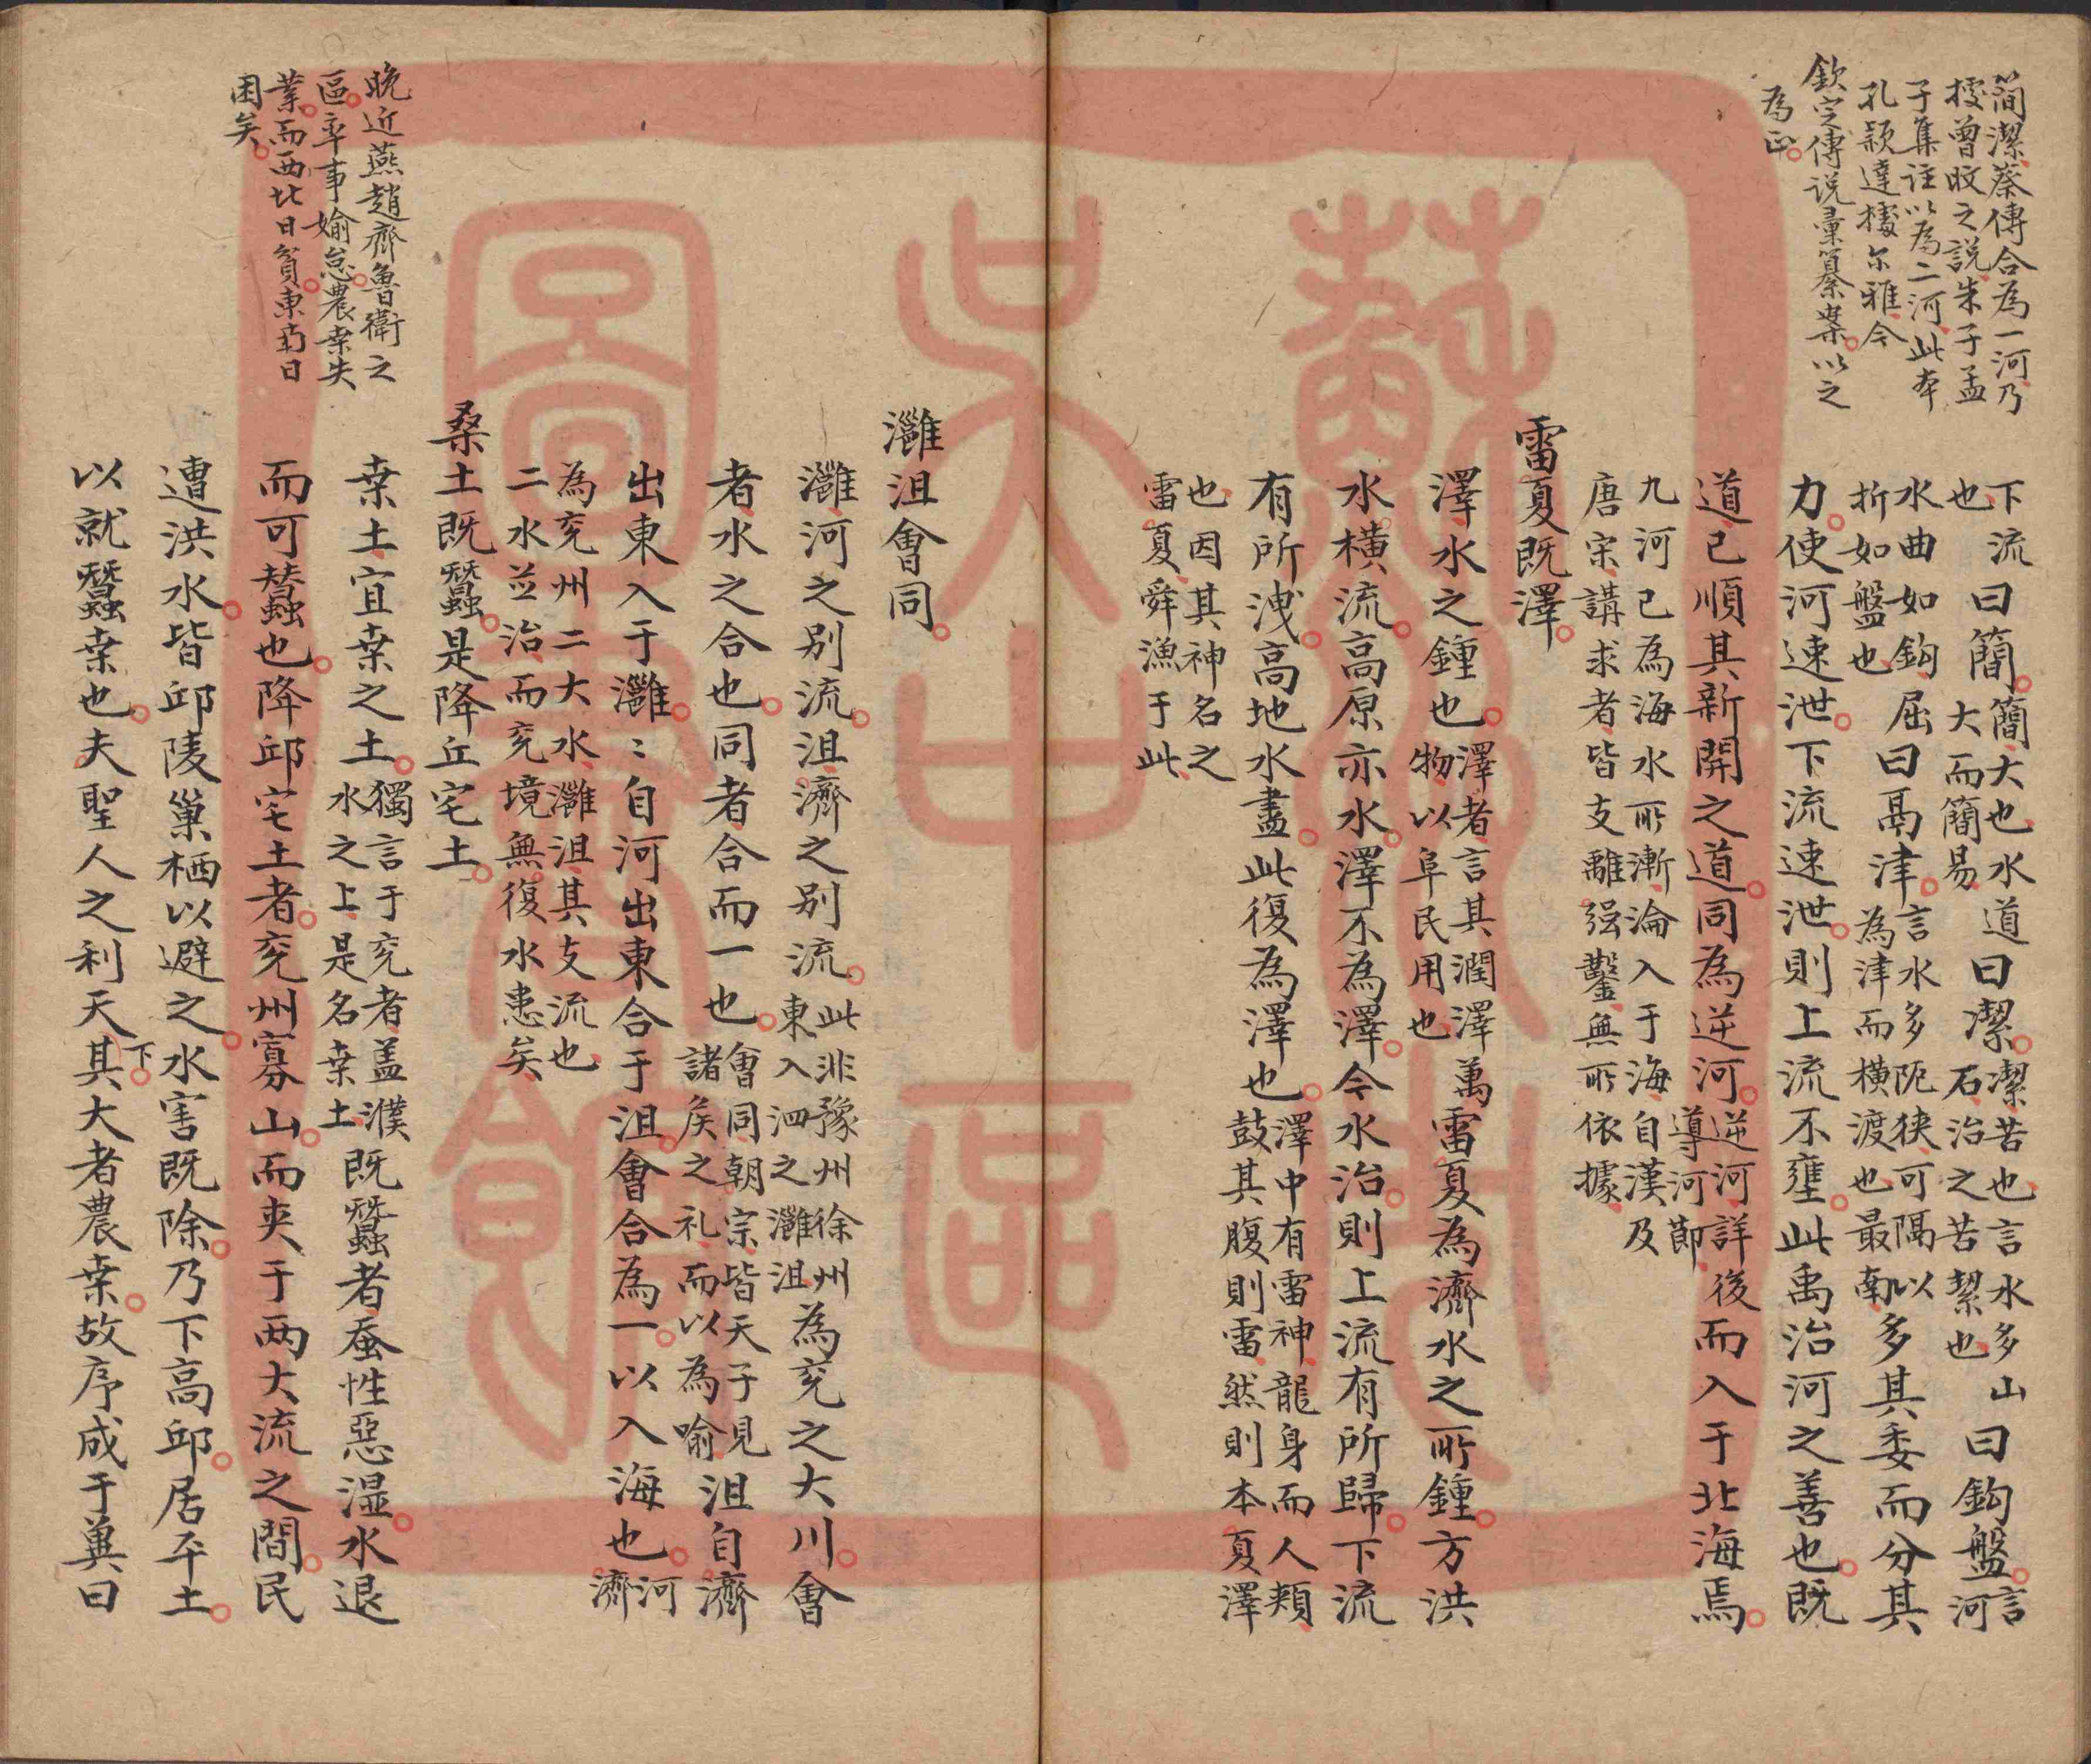 簡潔蔡傳合為一河乃
據曾旼之說朱子孟
子集註以為二河此本
孔穎達據尔雅今
欽定傳说彙纂案以之
為正
下流曰簡簡大也水道曰潔潔苦也言水多山曰鈎盤言
也大而簡易石治之苦絜也河
水曲如鈎屈曰鬲津言水多阨狹可隔以多其委而分其
折如盤也為津而横渡也最南
力使河速泄下流速泄則上流不壅此禹治河之善也既
道已順其新開之道同為逆河逆河詳後而入于北海焉
導河節
九河已為海水所漸淪入于海自漢及
唐宗講求者皆支離强鑿無所依據
雷夏既澤
澤水之鍾也澤者言其潤澤萬雷夏為濟水之所鍾方洪
物以阜民用也
水横流高原亦水澤不為澤今水治則上流有所歸下流
有所洩高地水盡此復為澤也澤中有雷神龍身而人頰
鼓其腹則雷然則本夏澤
也因其神名之
雷夏舜漁于此
灉沮會同
灉河之别流沮濟之别流此非豫州徐州為兖之大川會
東入泗之灉沮
者水之合也同者合而一也會同朝宗皆天子見沮自濟
諸矦之礼而以為喻
出東入于灉〻自河出東合于沮會合為一以入海也河
濟
為兖州二大水灉沮其支流也
二水並治而兖境無復水患矣
桑土既蠶是降丘宅土
桒土宜桒之土獨言于兖者盖濮既蠶者蚕性惡湿水退
水之上是名桒土
而可蠶也降邱宅土者兖州寡山而夹于两大流之間民
遭洪水皆邱陵巢栖以避之水害既除乃下高邱居平土
以就蠶桒也夫聖人之利天下其大者農桒故序成于兾曰
晚近燕趙齊魯衛之
區率事媮怠農桒失
業而西北日貧東南日
困矣
蘇州
吴中區
圖書館